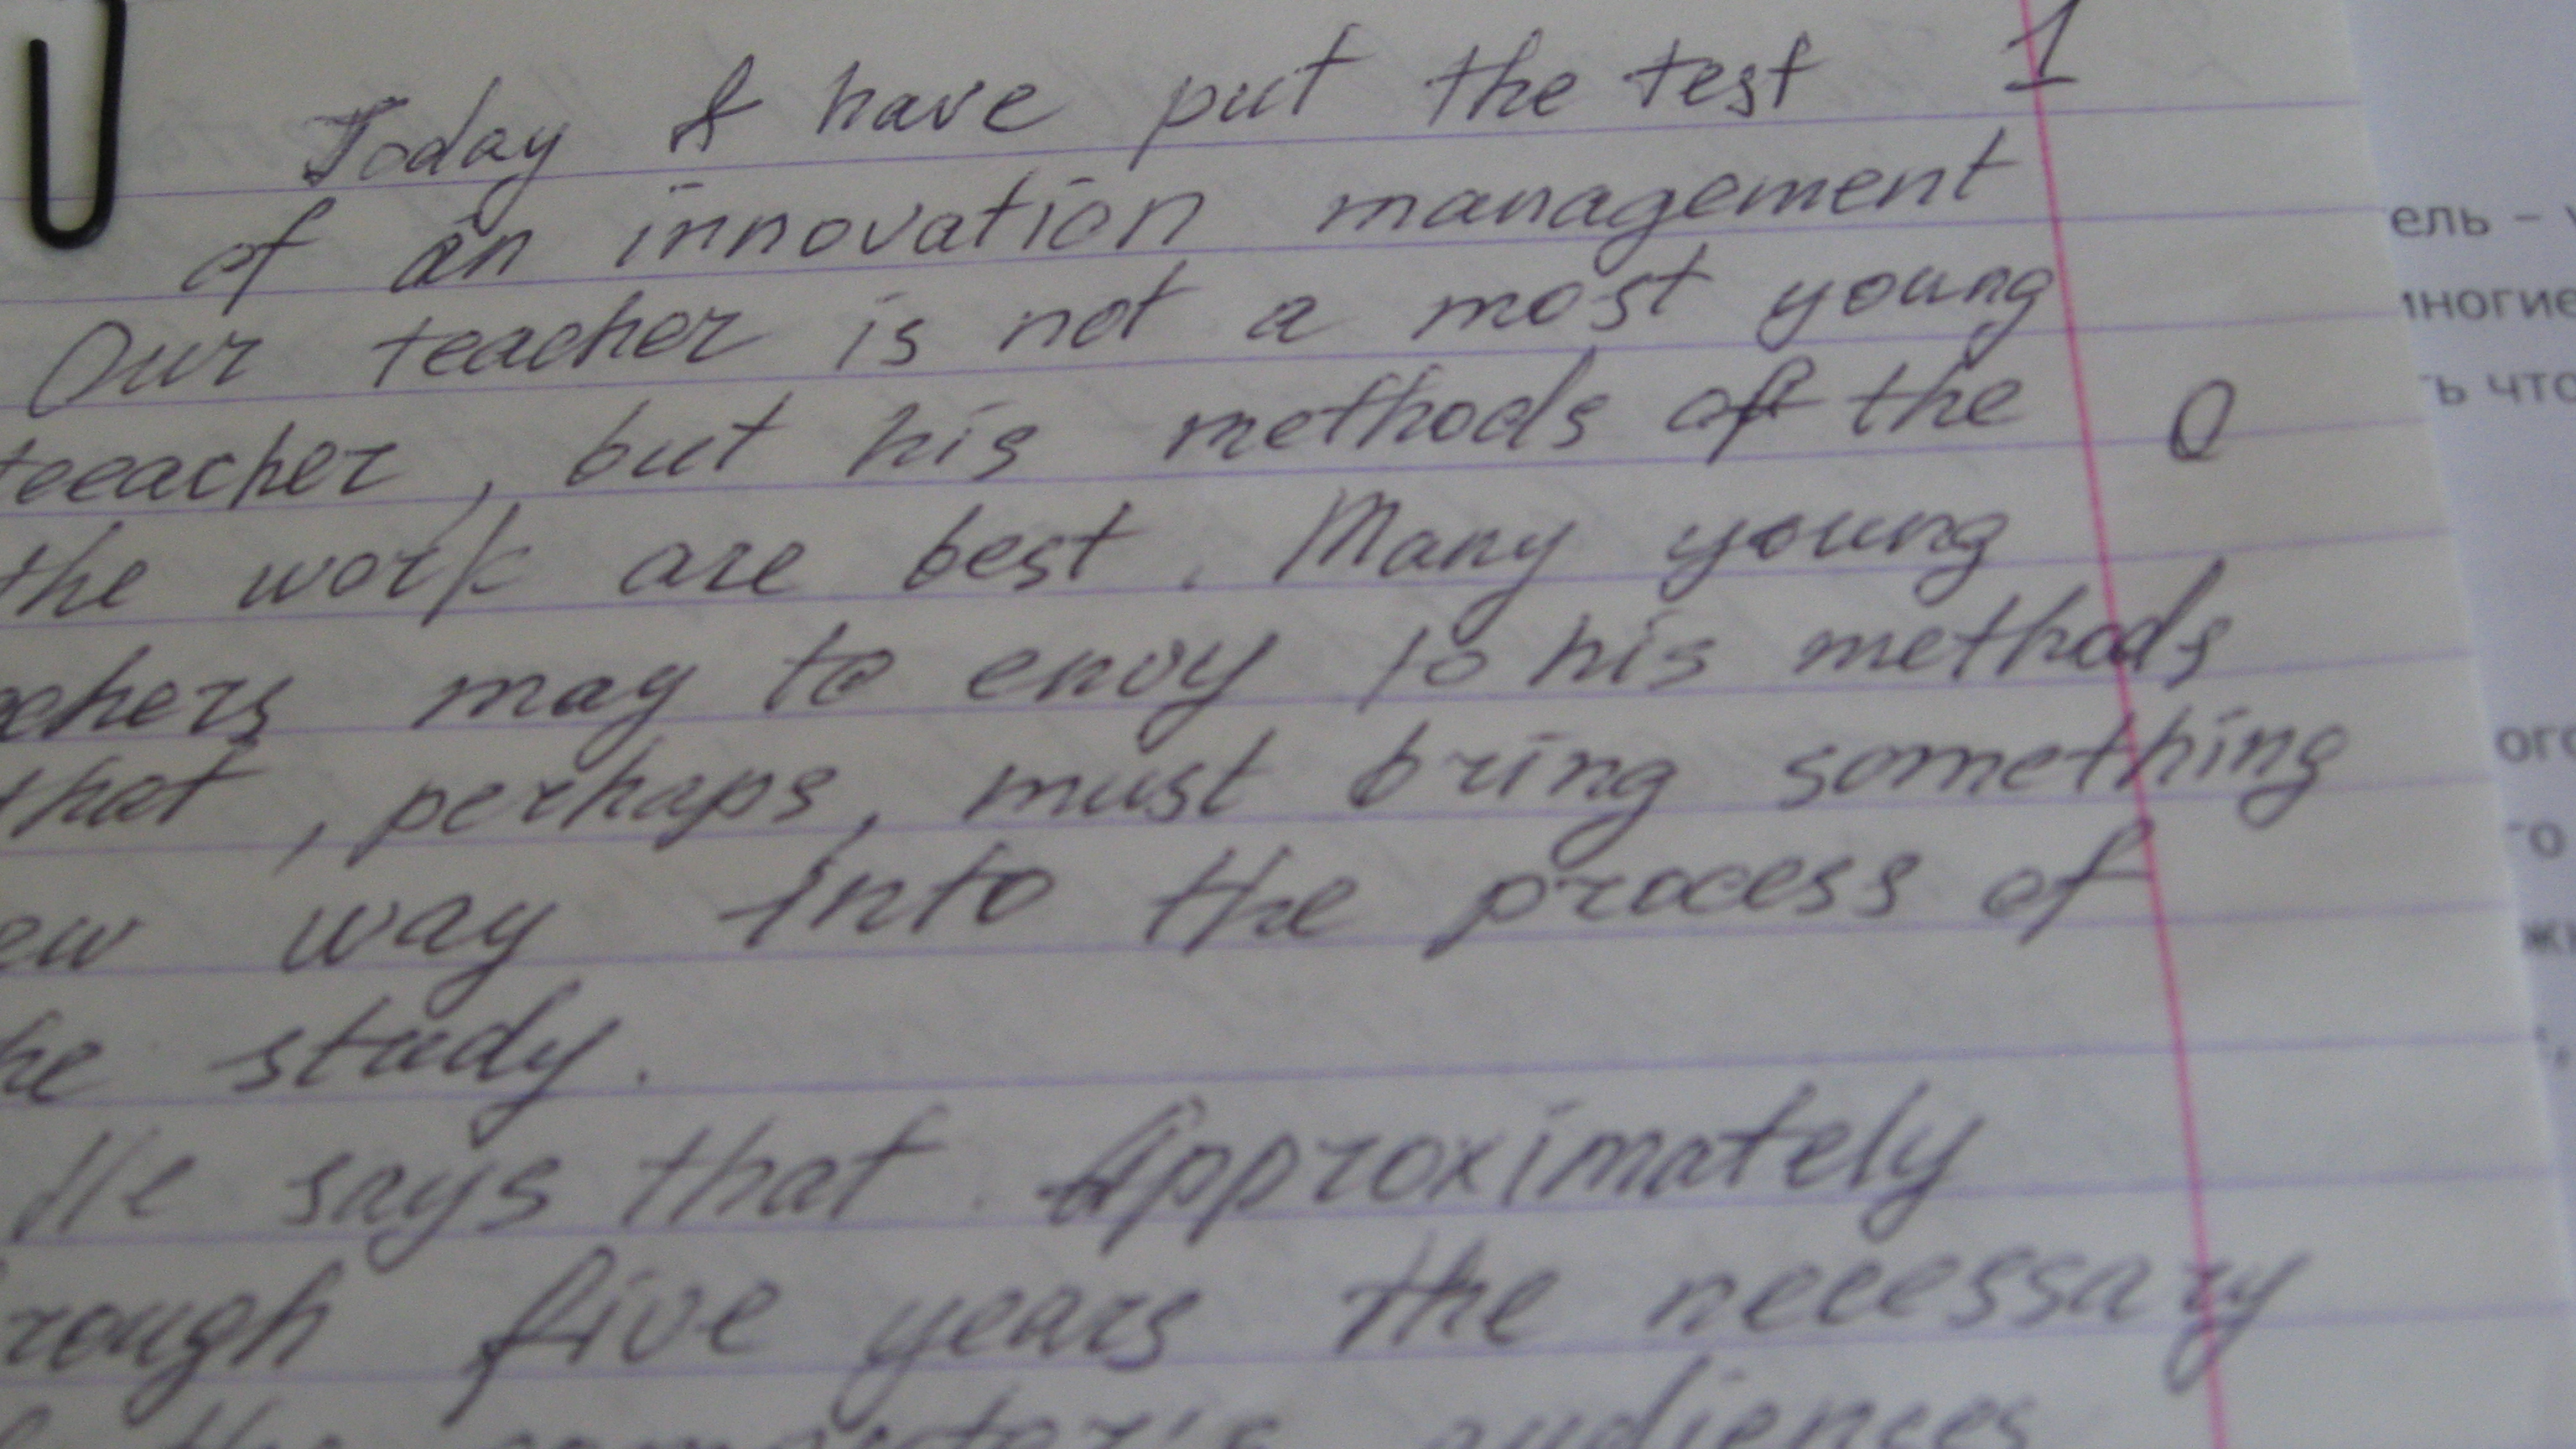 Today I have put the test 1
of an innovation management
Our teacher is not a most young
teeacher, but his methods of the 0
the work are best. Many young
chers may to envy to his methods
that, perhaps, must bring something
ew way into the process of
he study.
He says that Approximately
rough five years the necessary
the computer's audiences
ель –
многие
ть что
ого
го
жи